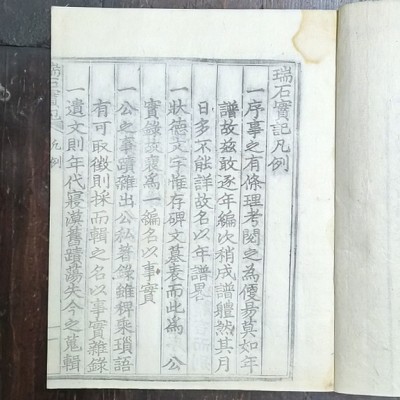 瑞石實記凡例
一序事之有條理考閱之為便易莫如年
譜故玆敢逐年編次稍成譜軆然其月
日多不能詳故名以年譜畧
一狀德文字惟存碑文墓表而此為公
實錄故裒為一編名以事實
一公之事蹟雜出公私著錄雖稗乘瑣語
有可取徵則採而輯之名以事實雜錄
一遺文則年代寢漠舊蹟蕩失今之蒐輯
瑞石實記 凡例